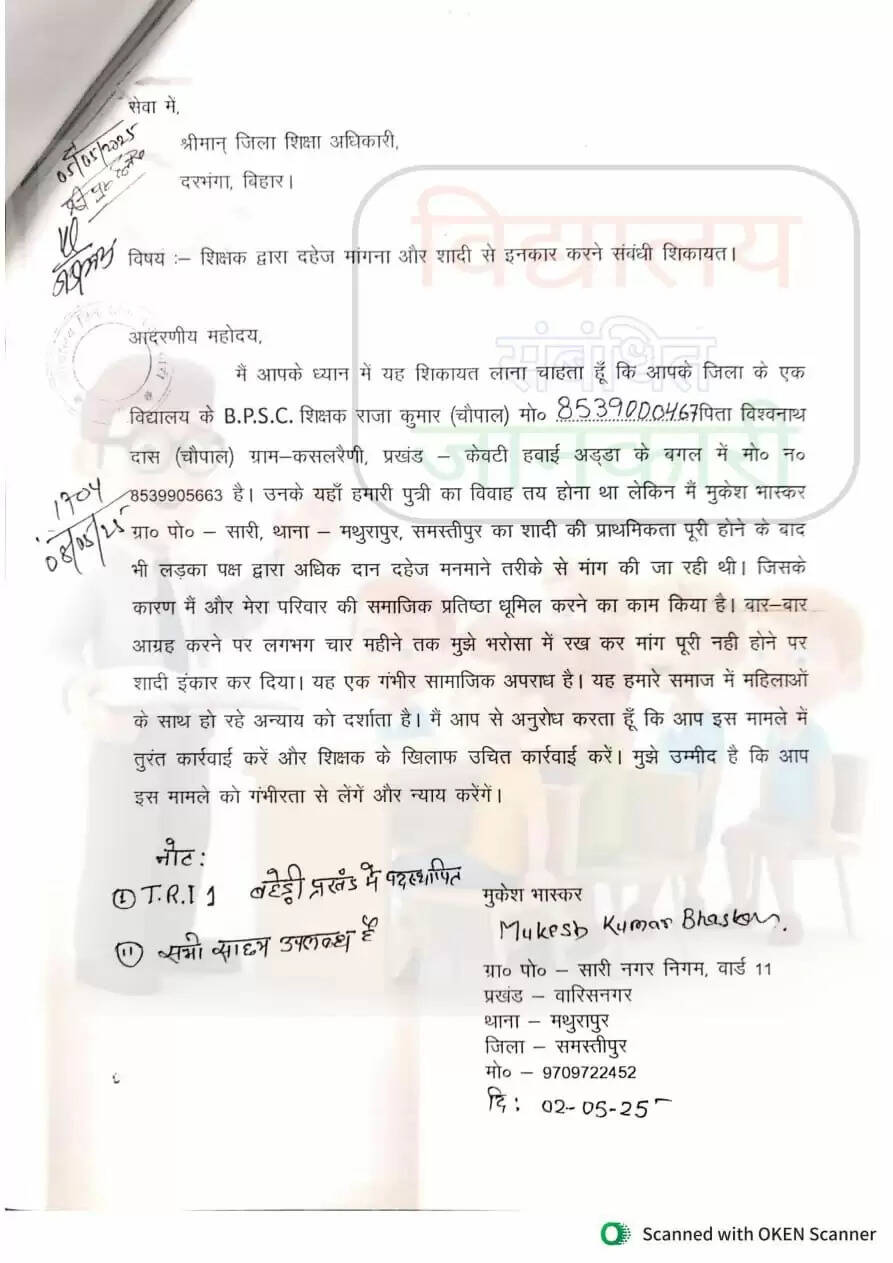 सेवा में,
श्रीमान् जिला शिक्षा अधिकारी,
दरभंगा, बिहार।
05/05/2025
विद्यालय
संबंधित
जानकारी
विषय :– शिक्षक द्वारा दहेज मांगना और शादी से इनकार करने संबंधी शिकायत।
आदरणीय महोदय,
मैं आपके ध्यान में यह शिकायत लाना चाहता हूँ कि आपके जिला के एक
विद्यालय के B.P.S.C. शिक्षक राजा कुमार (चौपाल) मो० 8539000467 पिता विश्वनाथ
दास (चौपाल) ग्राम–कसलरैणी, प्रखंड – केवटी हवाई अड्डा के बगल में मो० न०
8539905663 है। उनके यहाँ हमारी पुत्री का विवाह तय होना था लेकिन मैं मुकेश भास्कर
ग्रा० पो० – सारी, थाना – मथुरापुर, समस्तीपुर का शादी की प्राथमिकता पूरी होने के बाद
भी लड़का पक्ष द्वारा अधिक दान दहेज मनमाने तरीके से मांग की जा रही थी। जिसके
कारण मैं और मेरा परिवार की समाजिक प्रतिष्ठा धूमिल करने का काम किया है। बार–बार
आग्रह करने पर लगभग चार महीने तक मुझे भरोसा में रख कर मांग पूरी नही होने पर
शादी इंकार कर दिया। यह एक गंभीर सामाजिक अपराध है। यह हमारे समाज में महिलाओं
के साथ हो रहे अन्याय को दर्शाता है। मैं आप से अनुरोध करता हूँ कि आप इस मामले में
तुरंत कार्रवाई करें और शिक्षक के खिलाफ उचित कार्रवाई करें। मुझे उम्मीद है कि आप
इस मामले को गंभीरता से लेंगें और न्याय करेंगें।
1704
08/05/25
नोट :
(I) T.R.I 1 बहेड़ी प्रखंड में पदस्थापित
(II) सभी साक्ष्य उपलब्ध है
मुकेश भास्कर
Mukesh Kumar Bhaskar.
ग्रा० पो० – सारी नगर निगम, वार्ड 11
प्रखंड – वारिसनगर
थाना – मथुरापुर
जिला – समस्तीपुर
मो० – 9709722452
दि : 02-05-25
Scanned with OKEN Scanner